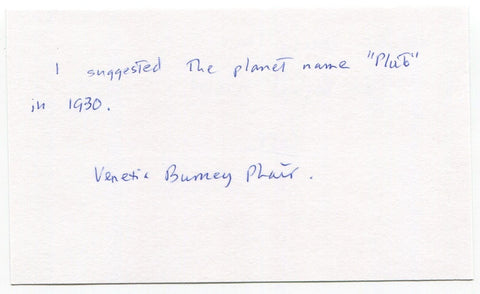 I suggested the planet name "Pluto"
in 1930.
Venetia Burney Phair.